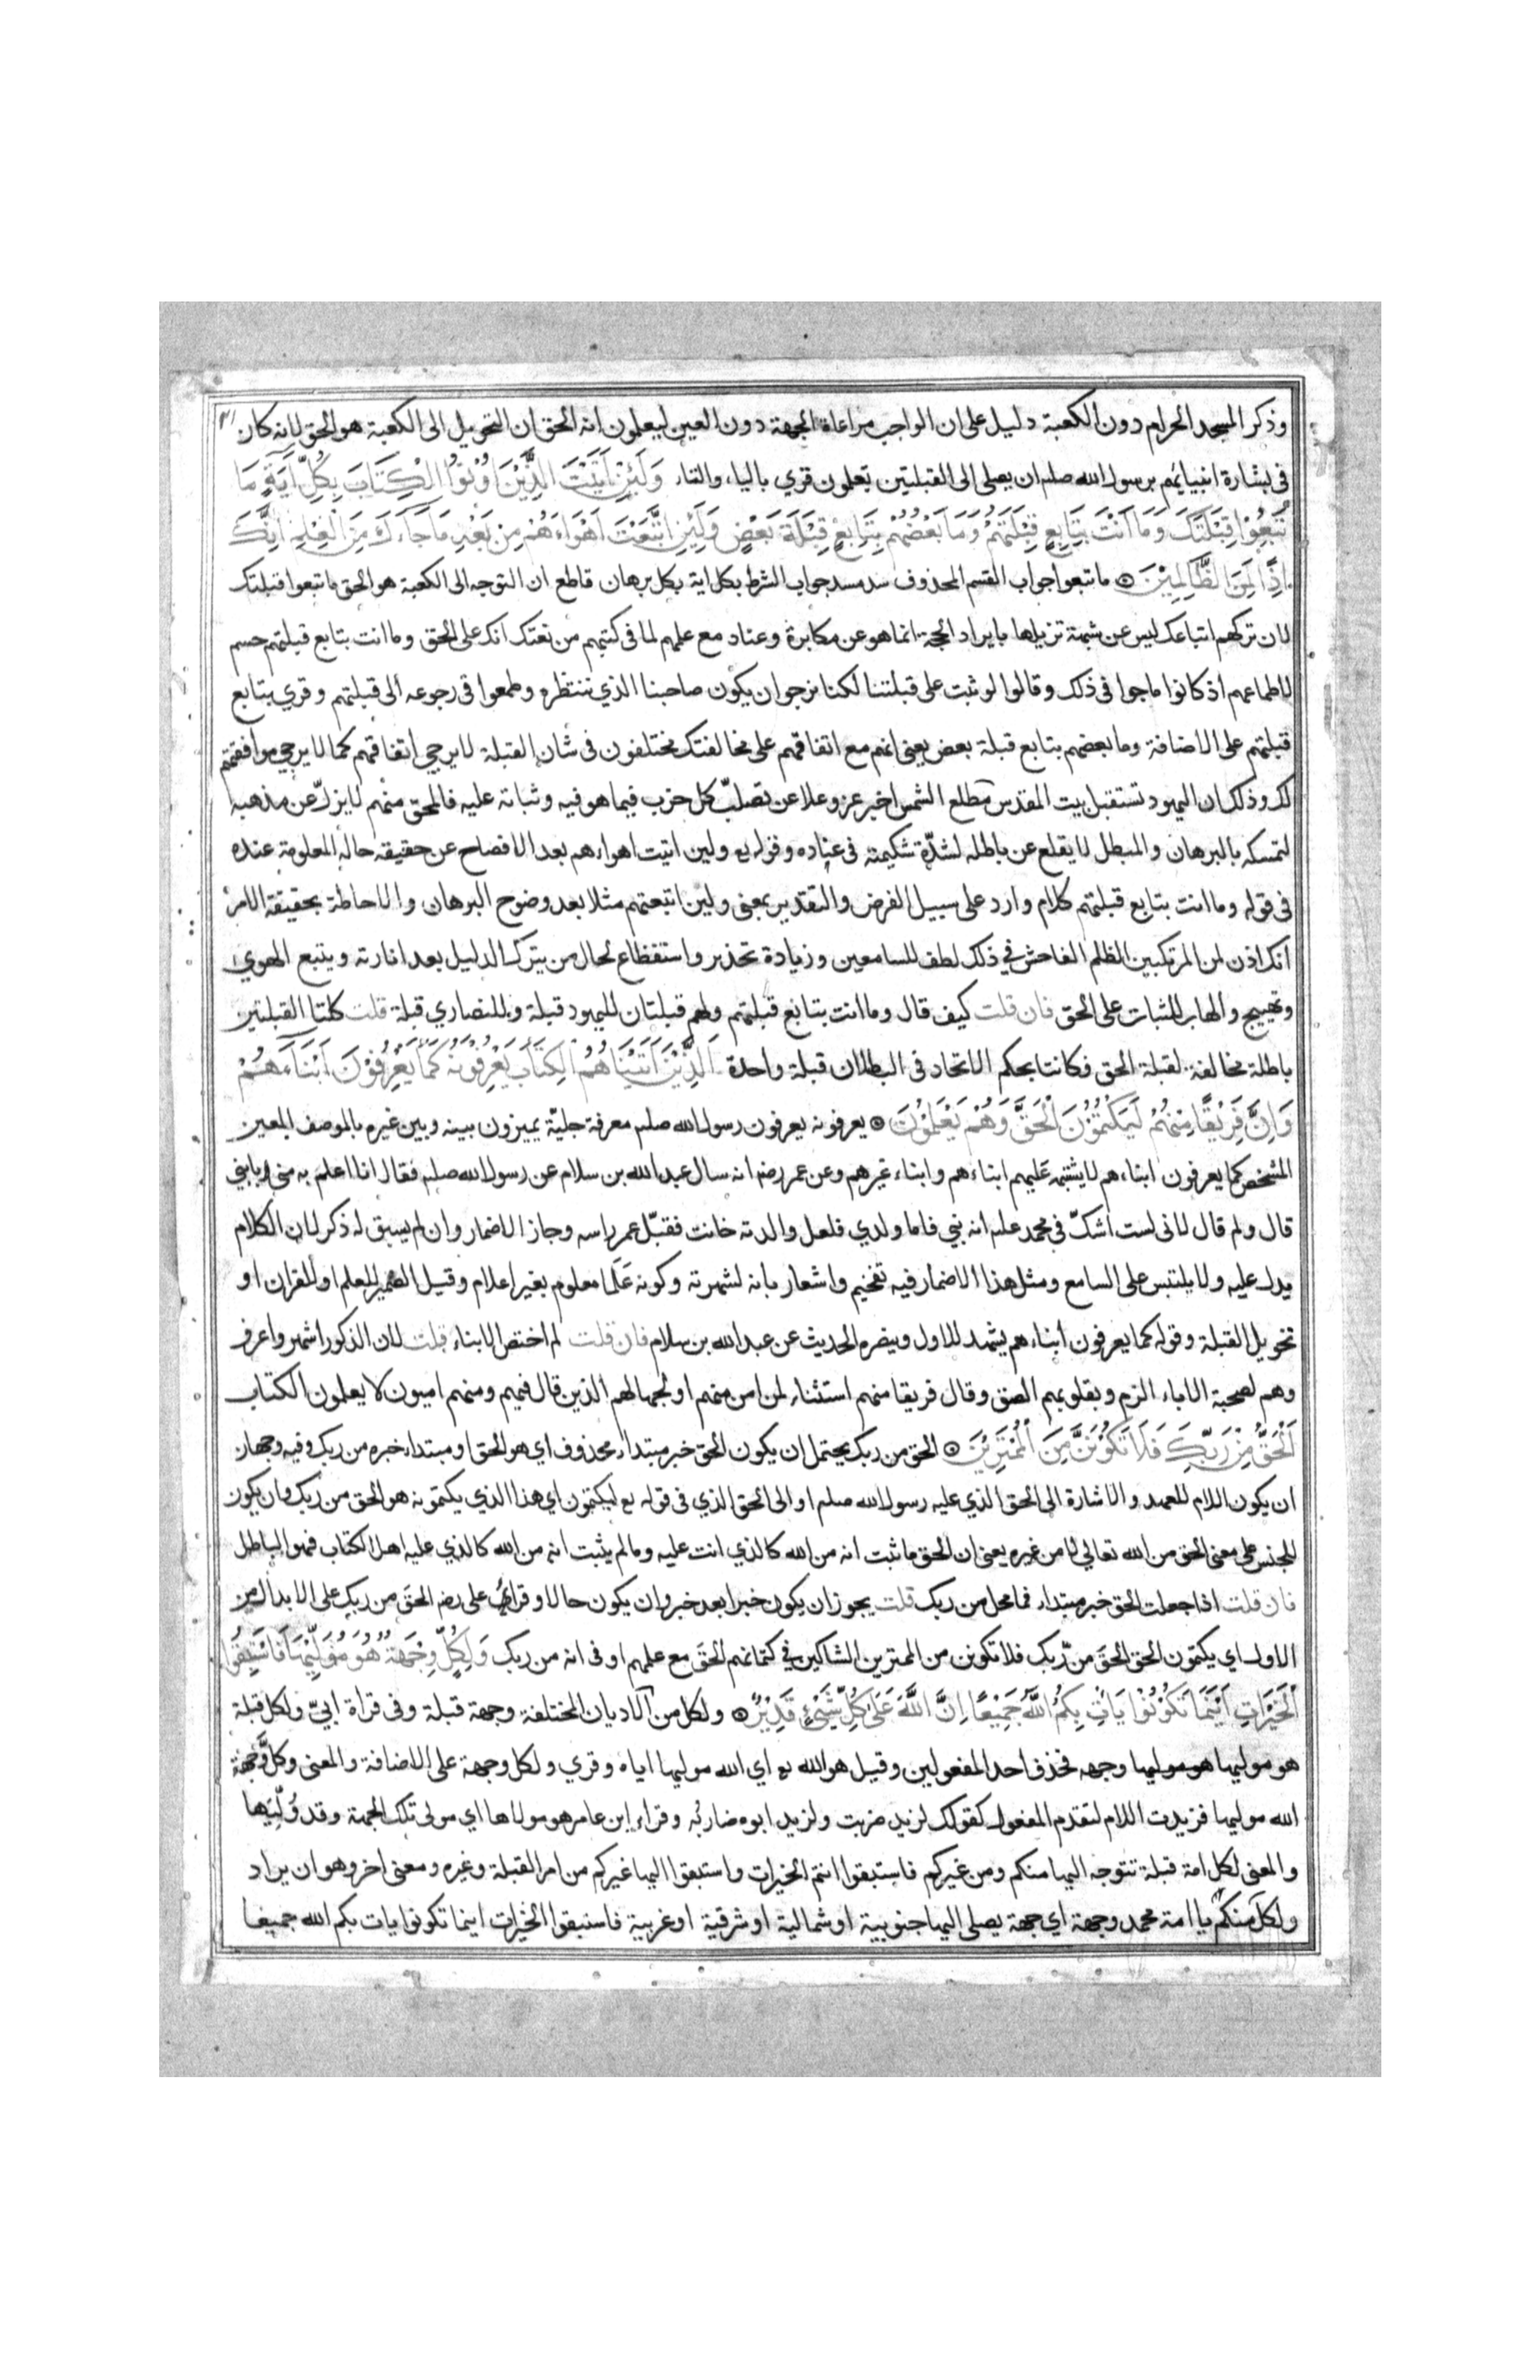 وذكر المسجد الحرام دون الكعبة دليل على ان الواجب مراعاة الجهة دون العين ليعلمون انه الحق ان التحويل الى الكعبة هو الحق لانه كان
فى بشارة انبيائهم برسول الله صلم ان يصلى الى القبلتين يعلمون قري بالياء والتاء وَلَئِنْ اَتَيْتَ الَّذِيْنَ اُوْتُوا الْكِتَابَ بِكُلِّ اٰيَةٍ مَا
تَبِعُوْا قِبْلَتَكَ وَمَا اَنْتَ بِتَابِعٍ قِبْلَتَهُمْ وَمَا بَعْضُهُمْ بِتَابِعٍ قِبْلَةَ بَعْضٍ وَلَئِنِ اتَّبَعْتَ اَهْوَاءَهُمْ مِنْ بَعْدِ مَا جَاءَكَ مِنَ الْعِلْمِ اِنَّكَ
اِذًا لَمِنَ الظَّالِمِيْنَ ماتبعوا جواب القسم المحذوف سد مسد جواب الشرط بكل اية بكل برهان قاطع ان التوجه الى الكعبة هو الحق ماتبعوا قبلتك
لان تركهم اتباعك ليس عن شبهة تزيلها بايراد الحجة انما هو عن مكابرة وعناد مع علمهم لما فى كتبهم من نعتك انك على الحق وما انت بتابع قبلتهم حسم
لاطماعهم اذ كانوا ماجوا فى ذلك وقالوا لو ثبت على قبلتنا لكنا نرجو ان يكون صاحبنا الذي ننتظره وطمعوا فى رجوعه الى قبلتهم وقري بتابع
قبلتهم على الاضافة وما بعضهم بتابع قبلة بعض يعنى انهم مع اتفاقهم على مخالفتك مختلفون فى شان القبلة لا يرجي اتفاقهم كما لا يرجي موافقتهم
لك وذلك ان اليهود تستقبل بيت المقدس مطلع الشمس اخبر عز وعلا عن تصلّب كل حزب فيما هو فيه وثباته عليه فالمحق منهم لا يزلّ عن مذهبه
لتمسكه بالبرهان والمبطل لا يقلع عن باطله لشدّة شكيمته فى عناده وقوله تع ولين اتيت اهواءهم بعد الافصاح عن حقيقه حاله المعلومة عنده
فى قوله وما انت بتابع قبلتهم كلام وارد على سبيل الفرض والتقدير بمعنى ولين اتبعتهم مثلا بعد وضوح البرهان والاحاطة بحقيقة الامر
انك اذن لمن المرتكبين الظلم الفاحش فى ذلك لطف للسامعين وزيادة تحذير واستفظاع لحال من يترك الدليل بعد انارته ويتبع الهوي
وتهييج والهاب للثبات على الحق فان قلت كيف قال وما انت بتابع قبلتهم ولهم قبلتان لليهود قبلة وللنصاري قبلة قلت كلتا القبلتين
باطلة مخالفة لقبلة الحق فكانتا بحكم الاتحاد فى البطلان قبلة واحدة اَلَّذِيْنَ اٰتَيْنَاهُمُ الْكِتَابَ يَعْرِفُوْنَهُ كَمَا يَعْرِفُوْنَ اَبْنَاءَهُمْ
وَاِنَّ فَرِيْقًا مِنْهُمْ لَيَكْتُمُوْنَ الْحَقَّ وَهُمْ يَعْلَمُوْنَ يعرفونه يعرفون رسول الله صلم معرفة جليّة يميزون بينه وبين غيره بالوصف المعين
المشخص كما يعرفون ابناءهم لا يشتبه عليهم ابناءهم وابناء غيرهم وعن عمر رضه انه سال عبد الله بن سلام عن رسول الله صلم فقال انا اعلم به منى بابني
قال ولم قال لانى لست اشكّ فى محمد علم انه نبي فاما ولدي فلعل والدته خانت فقبّل عمر راسه وجاز الاضمار وان لم يسبق له ذكر لان الكلام
يدل عليه ولا يلتبس على السامع ومثل هذا الاضمار فيه تفخيم واشعار بانه لشهرته وكونه عَلَما معلوم بغير اعلام وقيل الضمير للعلم او للقران او
تحويل القبلة وقوله كما يعرفون ابناءهم يشهد للاول وينصره الحديث عن عبد الله بن سلام فان قلت لم اختص الابناء قلت لان الذكور اشهر واعرف
وهم لصحبة الاباء الزم وبقلوبهم الصق وقال فريقا منهم استثناء لمن امن منهم او لجهالهم الذين قال فيهم ومنهم اميون لا يعلمون الكتاب
اَلْحَقُّ مِنْ رَبِّكَ فَلَا تَكُوْنَنَّ مِنَ الْمُمْتَرِيْنَ الحق من ربك يحتمل ان يكون الحق خبر مبتداء محذوف اي هو الحق او مبتداء خبره من ربك وفيه وجهان
ان يكون اللام للعهد والاشارة الى الحق الذي عليه رسول الله صلم او الى الحق الذي فى قوله تع ليكتمون اي هذا الذي يكتمونه هو الحق من ربك وان يكون
للجنس على معنى الحق من الله تعالي لا من غيره يعنى ان الحق ما ثبت انه من الله كالذي انت عليه وما لم يثبت انه من الله كالذي عليه اهل الكتاب فهو الباطل
فان قلت اذا جعلت الحق خبر مبتداء فما محل من ربك قلت يجوز ان يكون خبرا بعد خبر وان يكون حالا وقرا على رضه الحقَ من ربك على الابدال من
الاول اي يكتمون الحق الحقَ من رّبك فلا تكونن من الممترين الشاكين في كتمانهم الحق مع علمهم او فى انه من ربك وَلِكُلٍّ وِجْهَةٌ هُوَ مُوَلِّيْهَا فَاسْتَبِقُوا
اَلْخَيْرَاتِ اَيْنَمَا تَكُوْنُوْا يَاْتِ بِكُمُ اللّٰهُ جَمِيْعًا اِنَّ اللّٰهَ عَلٰى كُلِّ شَيْءٍ قَدِيْرٌ ولكل من الاديان المختلفة وجهة قبلة وفى قراة ابيّ ولكل قبلة
هو موليها هو موليها وجهه فحذف احد المفعولين وقيل هو الله تع اي الله موليها اياه وقري ولكل وجهة على الاضافة والمعنى وكلَّ وجهة
الله موليها فزيدت اللام لتقدم المفعول كقولك لزيد ضربت ولزيد ابوه ضاربُه وقراء ابن عامر هو مولاها اي مولى تلك الجهة وقد وُلّيَها
والمعنى لكل امة قبلة تتوجه اليها منكم ومن غيركم فاستبقوا انتم الخيرات واستبقوا اليها غيركم من امر القبلة وغيره ومعنى اخر وهو ان يراد
ولكل منكم يا امة محمد وجهة اي جهة يصلى اليها جنوبية او شمالية او شرقية او غربية فاستبقوا الخيرات اينما تكونوا يات بكم الله جميعا